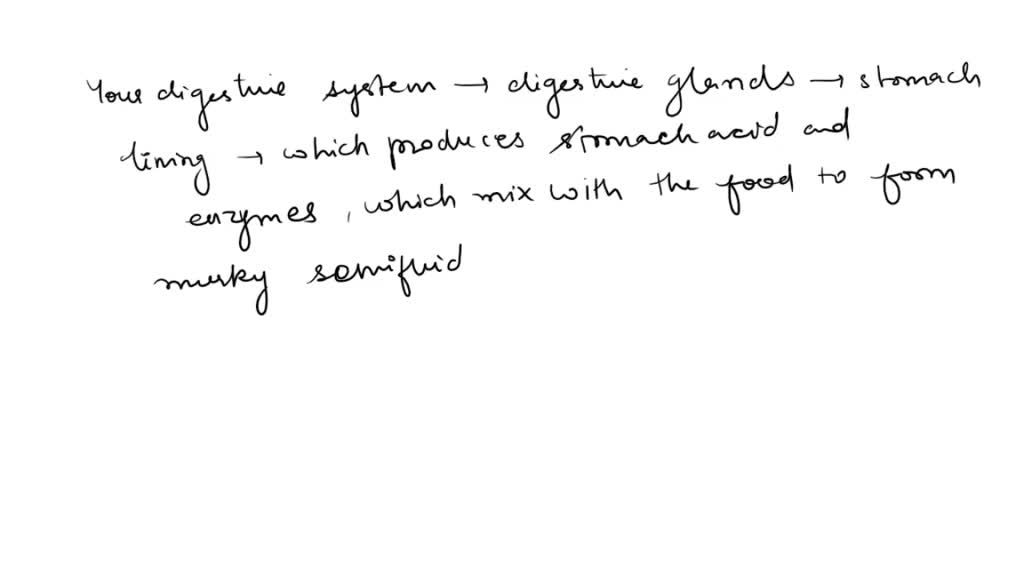 Your digestive system → digestive glands → stomach
lining → which produces stomach acid and
enzymes, which mix with the food to form
murky semifluid